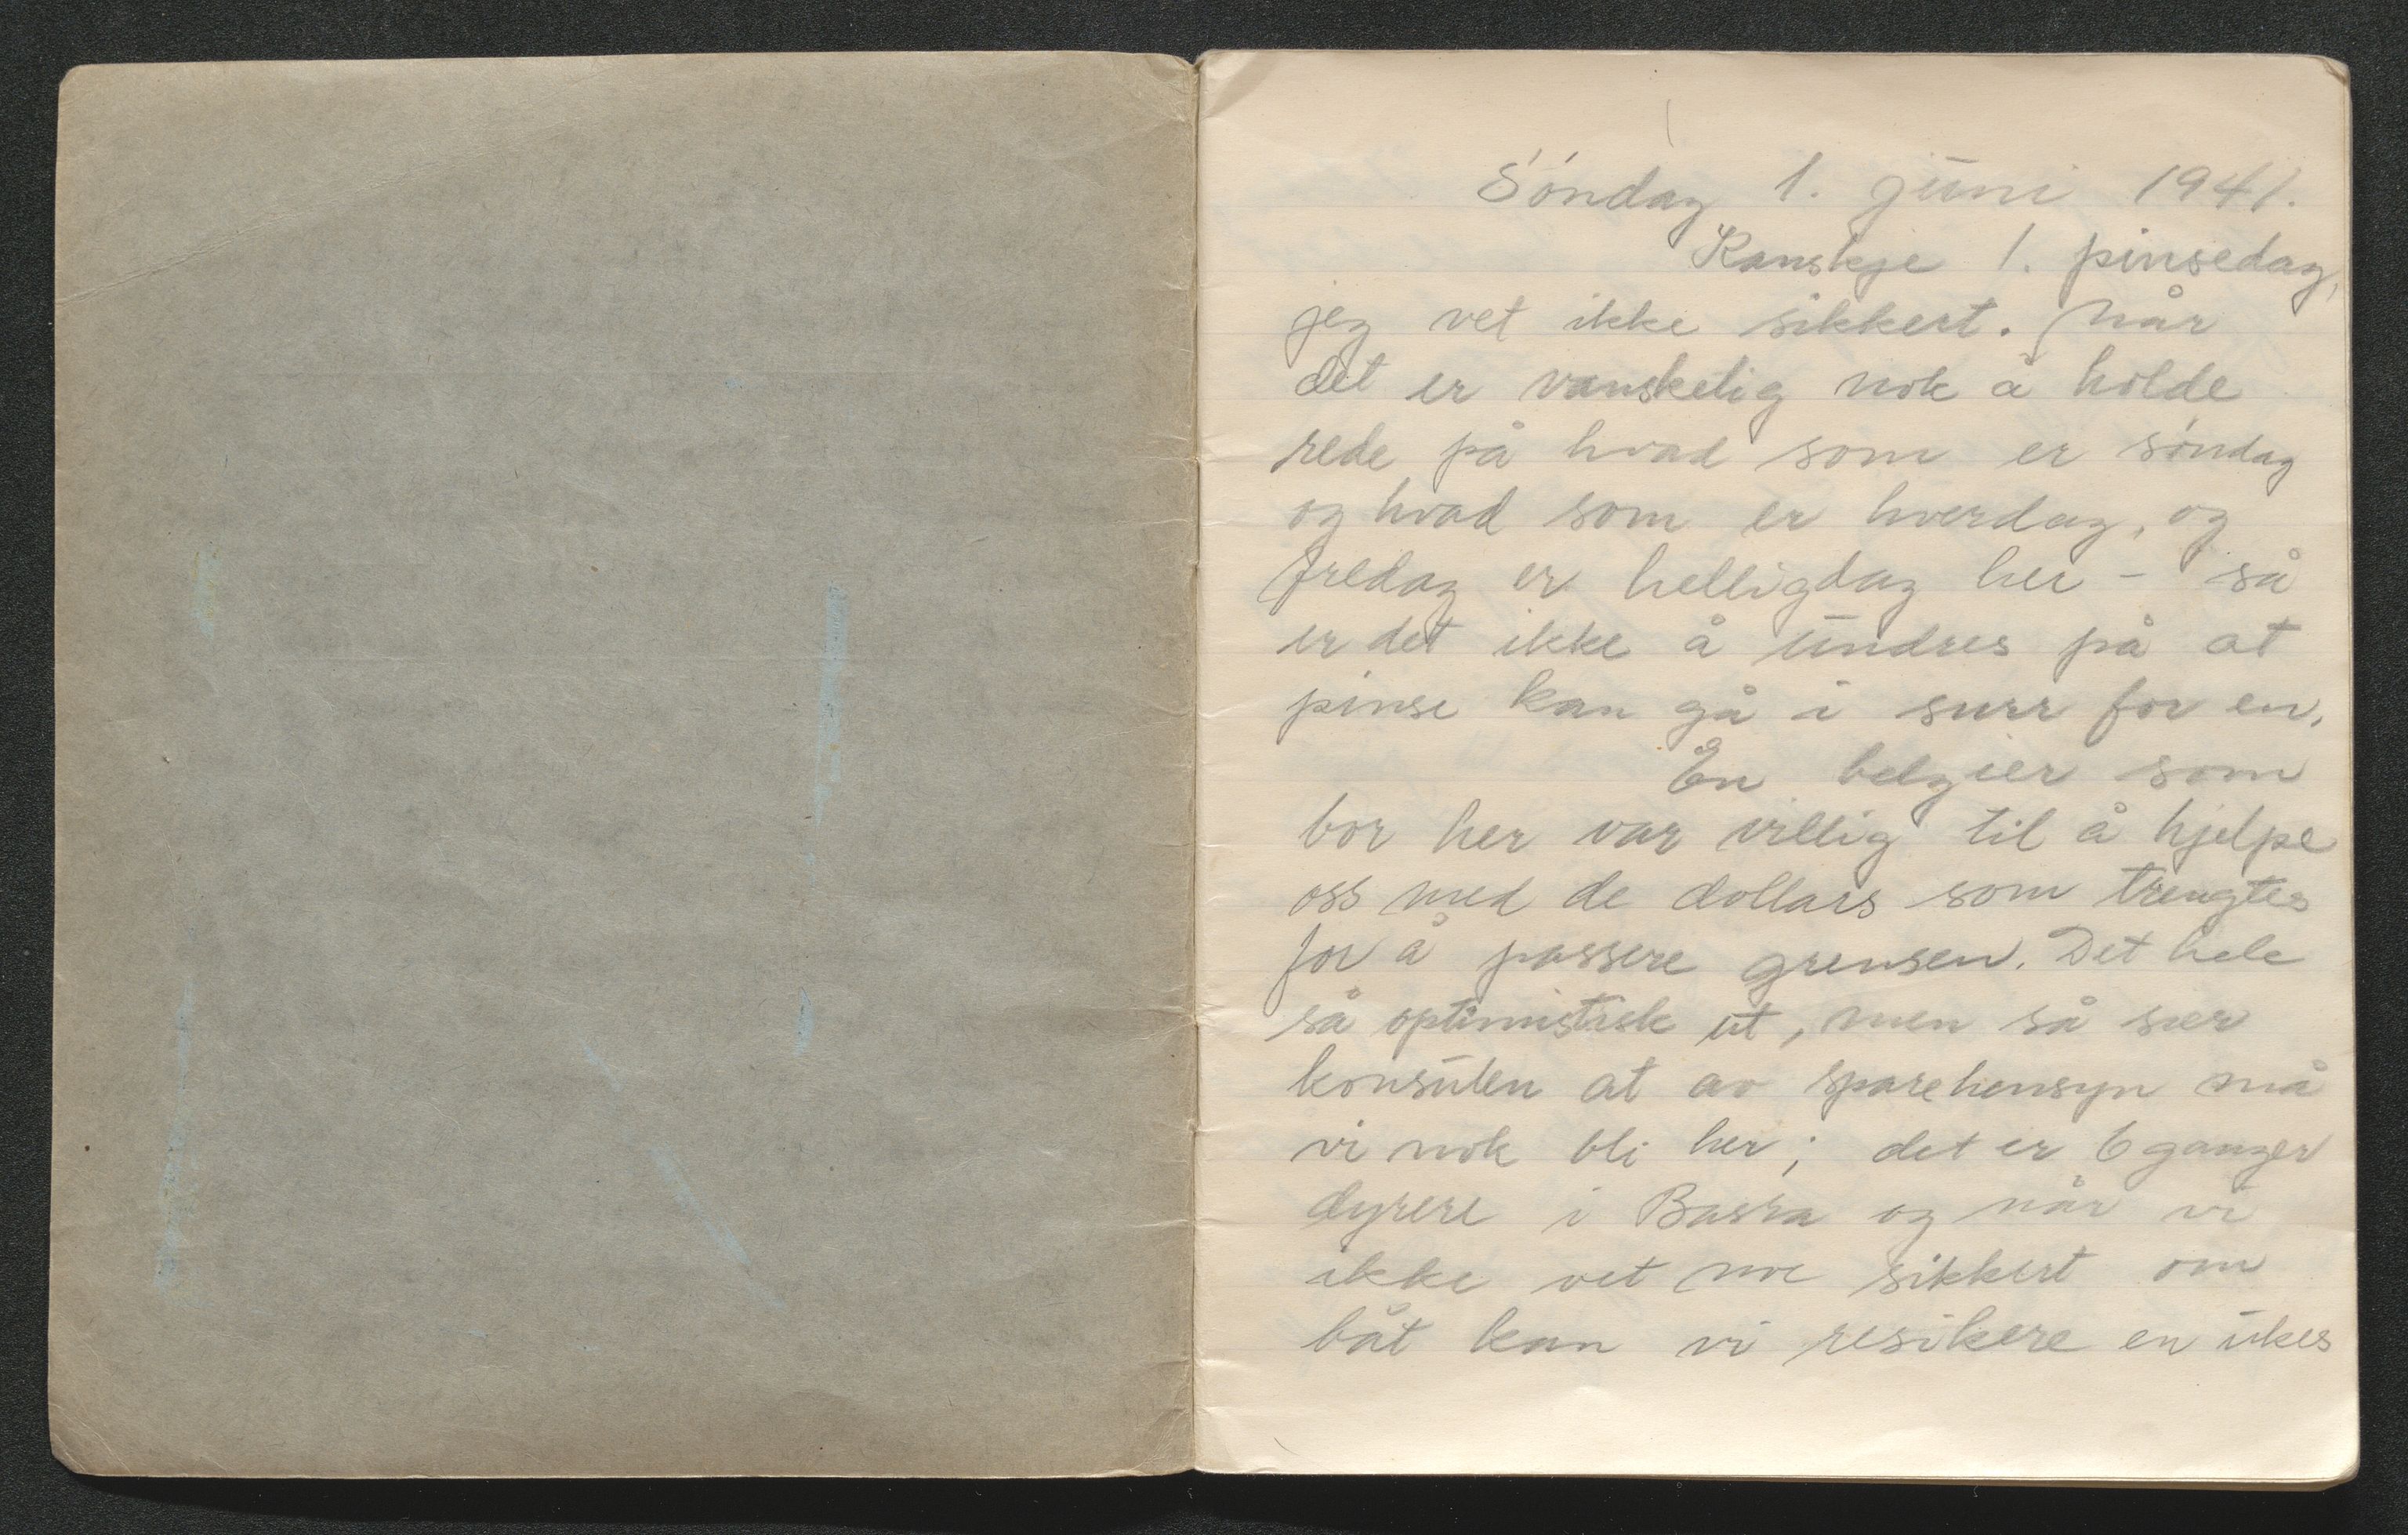 Söndag 1. juni 1941.
Kanskje 1. pinsedag,
jeg vet ikke sikkert. Når
det er vanskelig nok å holde
rede på hvad som er söndag
og hvad som er hverdag, og
fredag er helligdag her - så
er det ikke å undres på at
pinse kan gå i surr for en.
En belgier som
bor her var villig til å hjelpe
oss med de dollars som trengtes
for å passere grensen. Det hele
så optimistisk ut, men så sier
konsulen at av sparehensyn må
vi nok bli her; det er 6 ganger
dyrere i Basra og når vi
ikke vet noe sikkert om
båt kan vi resikere en ukes